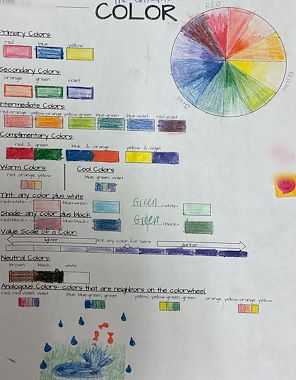 COLOR
RED
Primary Colors:
red blue yellow
Secondary Colors:
orange green violet
Intermediate Colors:
red-orange yellow-orange yellow-green blue-green blue-violet red-violet
Complimentary Colors:
red & green blue & orange yellow & violet
Warm Colors: Cool Colors:
red, orange, yellow blue, green, violet
Tint- any color plus white
red+white= blue+white= Green +white=
Shade- any color plus black
red+black= blue+black= Green +black=
Value Scale of a Color
lighter pick any color for here darker
Neutral Colors:
brown black white
Analogous Colors- colors that are neighbors on the colorwheel
red, red-violet, violet blue, blue-green, green yellow, yellow-green, green orange, yellow-orange, yellow